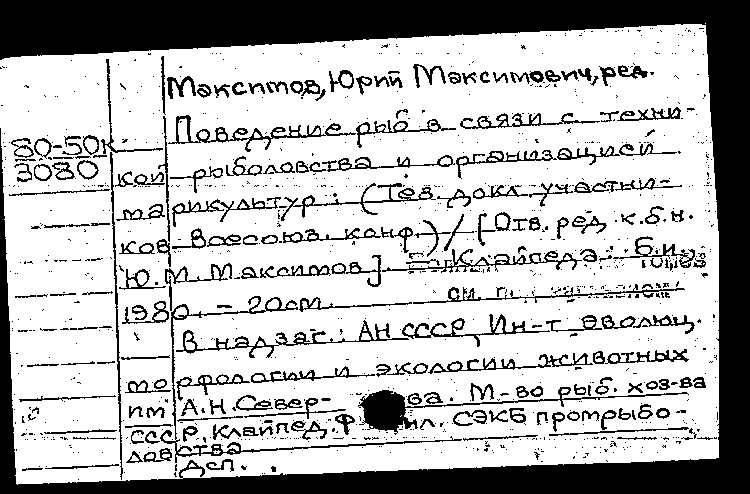 Максимов, Юрий Максимович, ред.
80-50к
3080
Поведение рыб в связи с техни-
кой рыболовства и организацией
марикультур: (Тез. докл. участни-
ков Всесоюз. конф.) / [Отв. ред. к.б.н.
Ю.М. Максимов]. Клайпеда: Б.и.,
1980. - 20см. см.
В надзаг.: АН СССР, Ин-т эволюц.
морфологии и экологии животных
им. А.Н. Север- ва. М-во рыб. хоз-ва
СССР. Клайпед. ф ил. СЭКБ промрыбо-
ловства.
Дсп.